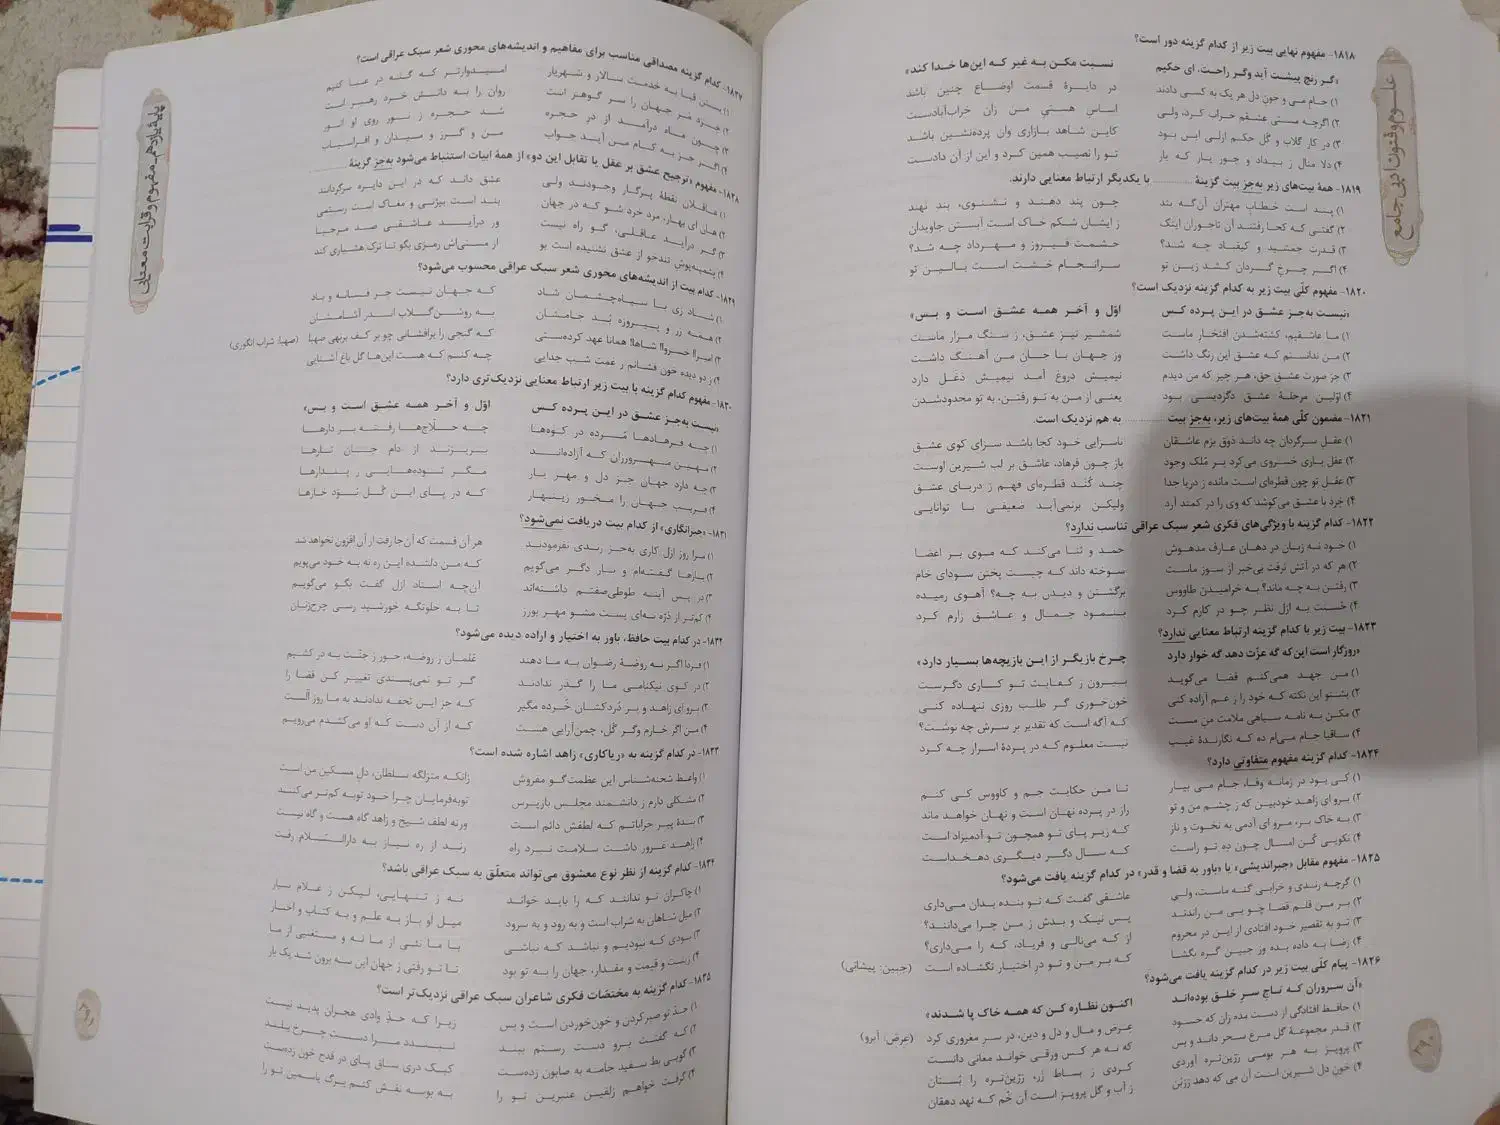 علوم و فنون ادبی جامع
۱۸۱۸- مفهوم نهایی بیت زیر از کدام گزینه دور است؟
«گر رنج پیشت آید وگر راحت، ای حکیم نسبت مکن به غیر که این‌ها خدا کند»
۱) جام می و خون دل هر یک به کسی دادند در دایرهٔ قسمت اوضاع چنین باشد
۲) اگرچه مستی عشقم خراب کرد، ولی اساس هستی من زان خراب‌آبادست
۳) در کار گلاب و گل حکم ازلی این بود کاین شاهد بازاری وان پرده‌نشین باشد
۴) دلا منال ز بیداد و جور یار که یار تو را نصیب همین کرد و این از آن دادست
۱۸۱۹- همهٔ بیت‌های زیر به‌جز بیت گزینهٔ .......... با یکدیگر ارتباط معنایی دارند.
۱) پند است خطاب مهتران آن‌گه بند چون پند دهند و نشنوی، بند نهند
۲) گفتی که کجا رفتند آن تاجوران اینک ز ایشان شکم خاک است آبستن جاویدان
۳) قدرت جمشید و کیقباد چه شد؟ حشمت فیروز و مهرداد چه شد؟
۴) اگر چرخ گردان کشد زین تو سرانجام خشت است بالین تو
۱۸۲۰- مفهوم کلّی بیت زیر به کدام گزینه نزدیک است؟
«نیست به‌جز عشق در این پرده کس اوّل و آخر همه عشق است و بس»
۱) ما عاشقیم، کشته‌شدن افتخار ماست شمشیر تیز عشق، ز سنگ مزار ماست
۲) من ندانستم که عشق این رنگ داشت وز جهان با جان من آهنگ داشت
۳) جز صورت عشق حق، هر چیز که من دیدم نیمیش دروغ آمد نیمیش دغل دارد
۴) اوّلین مرحلهٔ عشق دگردیسی بود یعنی از من به تو رفتن، به تو محدودشدن
۱۸۲۱- مضمون کلّی همهٔ بیت‌های زیر، به‌جز بیت .......... به هم نزدیک است.
۱) عقل سرگردان چه داند ذوق بزم عاشقان ناسزایی خود کجا باشد سزای کوی عشق
۲) عقل یاری خسروی می‌کرد بر مُلک وجود باز چون فرهاد، عاشق بر لب شیرین اوست
۳) عقل تو چون قطره‌ای است مانده ز دریا جدا چند کُند قطره‌ای فهم ز دریای عشق
۴) خرد با عشق می‌کوشد که وی را در کمند آرد ولیکن برنمی‌آید ضعیفی با توانایی
۱۸۲۲- کدام گزینه با ویژگی‌های فکری شعر سبک عراقی تناسب ندارد؟
۱) خود نه زبان در دهان عارف مدهوش حمد و ثنا می‌کند که موی بر اعضا
۲) هر که در آتش نرفت بی‌خبر از سوز ماست سوخته داند که چیست پختن سودای خام
۳) رفتن به چه ماند؟ به خرامیدن طاووس برگشتن و دیدن به چه؟ آهوی رمیده
۴) حُسنت به ازل نظر چو در کارم کرد بنمود جمال و عاشق زارم کرد
۱۸۲۳- بیت زیر با کدام گزینه ارتباط معنایی ندارد؟
«روزگار است این‌که گه عزّت دهد گه خوار دارد چرخ بازیگر از این بازیچه‌ها بسیار دارد»
۱) من جهد همی‌کنم قضا می‌گوید بیرون ز کفایت تو کاری دگرست
۲) بشنو این نکته که خود را ز غم آزاده کنی خون‌خوری گر طلب روزی ننهاده کنی
۳) مکن به نامه سیاهی ملامت من مست که آگه است که تقدیر بر سرش چه نوشت؟
۴) ساقیا جام می‌ام ده که نگارندهٔ غیب نیست معلوم که در پردهٔ اسرار چه کرد
۱۸۲۴- کدام گزینه مفهوم متفاوتی دارد؟
۱) کی بود در زمانه وفا، جام می بیار تا من حکایت جم و کاووس کی کنم
۲) برو ای زاهد خودبین که ز چشم من و تو راز در پرده نهان است و نهان خواهد ماند
۳) به خاک بر، مرو ای آدمی به نخوت و ناز که زیر پای تو همچون تو آدمیزاد است
۴) نکویی کُن امسال چون ده تو راست که سال دگر دیگری دهخداست
۱۸۲۵- مفهوم مقابل «جبراندیشی» یا «باور به قضا و قدر» در کدام گزینه یافت می‌شود؟
۱) گرچه رندی و خرابی گنه ماست، ولی عاشقی گفت که تو بنده بدان می‌داری
۲) بر من قلم قضا چو بی من راندند پس نیک و بدش ز من چرا می‌دانند؟
۳) تو به تقصیر خود افتادی از این در محروم از که می‌نالی و فریاد، که را می‌داری؟
۴) رضا به داده بده وز جبین گره بگشا که بر من و تو درِ اختیار نگشاده است (جبین: پیشانی)
۱۸۲۶- پیام کلّی بیت زیر در کدام گزینه یافت می‌شود؟
«آن سروران که تاج سر خلق بوده‌اند اکنون نظاره کن که همه خاک پا شدند»
۱) حافظ افتادگی از دست مده زان که حسود عِرض و مال و دل و دین، در سر مغروری کرد (عِرض: آبرو)
۲) قدر مجموعهٔ گل مرغ سحر داند و بس که نه هر کس ورقی خواند معانی دانست
۳) پرویز به هر بومی زرّین‌تره آوردی کردی ز بساط زر، زرّین‌تره را بُستان
۴) خون دل شیرین است آن می که دهد رزبُن ز آب و گل پرویز است آن خُم که نهد دهقان
۳۹۰
پایهٔ یازدهم - مفهوم و قرابت معنایی
۱۸۲۷- کدام گزینه مصداقی مناسب برای مفاهیم و اندیشه‌های محوری شعر سبک عراقی است؟
۱) بستن قبا به خدمت سالار و شهریار امیدوارتر که گنه در عبا کنیم
۲) خرد مر جهان را سر گوهر است روان را به دانش خرد رهبر است
۳) چون ماه درآمد از در حجره شد حجره ز نور روی او انور
۴) اگر جز به کام من آید جواب من و گرز و میدان و افراسیاب
۱۸۲۸- مفهوم «ترجیح عشق بر عقل یا تقابل این دو» از همهٔ ابیات استنباط می‌شود به‌جز گزینهٔ ..........
۱) عاقلان نقطهٔ پرگار وجودند ولی عشق داند که در این دایره سرگردانند
۲) هان ای بهار، مرد خرد شو که در جهان بند است بیژنی و مغاک است رستمی
۳) گر درآید عاقلی، گو راه نیست ور درآید عاشقی صد مرحبا
۴) پشمینه‌پوش تندخو از عشق نشنیده است بو از مستی‌اش رمزی بگو تا ترک هشیاری کند
۱۸۲۹- کدام بیت از اندیشه‌های محوری شعر سبک عراقی محسوب می‌شود؟
۱) شاد زی با سیاه‌چشمان شاد که جهان نیست جز فسانه و باد
۲) همه زر و پیروزه بُد جامشان به روشن‌گلاب اندر آشامشان
۳) امیرا! خسروا! شاها! همانا عهد کرده‌ستی که گنجی را برافشانی چو بر کف برنهی صهبا (صهبا: شراب انگوری)
۴) ز دو دیده خون فشانم ز غمت شب جدایی چه کنم که هست این‌ها گل باغ آشنایی
۱۸۳۰- مفهوم کدام گزینه با بیت زیر ارتباط معنایی نزدیک‌تری دارد؟
«نیست به‌جز عشق در این پرده کس اوّل و آخر همه عشق است و بس»
۱) چه فرهادها مُرده در کوه‌ها چه حلّاج‌ها رفته بر دارها
۲) مهین مهرورزان که آزاده‌اند بریزند از دام جان تارها
۳) چه دارد جهان جز دل و مهر یار مگر توده‌هایی ز پندارها
۴) فریب جهان را مخور زینهار که در پای این گل بُوَد خارها
۱۸۳۱- «جبرانگاری» از کدام بیت دریافت نمی‌شود؟
۱) مرا روز ازل کاری به‌جز رندی نفرمودند هر آن قسمت که آن‌جا رفت از آن افزون نخواهد شد
۲) بارها گفته‌ام و بار دگر می‌گویم که من دلشده این ره نه به خود می‌پویم
۳) در پس آینه طوطی‌صفتم داشته‌اند آن‌چه استاد ازل گفت بگو می‌گویم
۴) کم‌تر از ذرّه نه‌ای پست مشو مهر بورز تا به خلوتگه خورشید رسی چرخ‌زنان
۱۸۳۲- در کدام بیت حافظ، باور به اختیار و اراده دیده می‌شود؟
۱) فردا اگر نه روضهٔ رضوان به ما دهند غلمان ز روضه، حور ز جنّت به در کشیم
۲) در کوی نیکنامی ما را گذر ندادند گر تو نمی‌پسندی تغییر کن قضا را
۳) برو ای زاهد و بر دُردکشان خُرده مگیر که جز این تحفه ندادند به ما روز الست
۴) من اگر خارم وگر گُل، چمن‌آرایی هست که از آن دست که او می‌کشدم می‌رویم
۱۸۳۳- در کدام گزینه به «ریاکاری» زاهد اشاره شده است؟
۱) واعظ شحنه‌شناس این عظمت گو مفروش زانکه منزلگه سلطان، دل مسکین من است
۲) مشکلی دارم ز دانشمند مجلس بازپرس توبه‌فرمایان چرا خود توبه کم‌تر می‌کنند
۳) بندهٔ پیر خراباتم که لطفش دائم است ورنه لطف شیخ و زاهد گاه هست و گاه نیست
۴) زاهد غرور داشت سلامت نبرد راه رند از ره نیاز به دارالسّلام رفت
۱۸۳۴- کدام گزینه از نظر نوع معشوق می‌تواند متعلّق به سبک عراقی باشد؟
۱) چاکران تو ندانند که را باید خواند نه ز تنهایی، لیکن ز غلام بسیار
۲) میل شاهان به شراب است و به رود و به سرود میل او باز به علم و به کتاب و اخبار
۳) بودی که نبودیم و نباشد که نباشی با ما نئی از ما نه و مستغنی از ما
۴) زینت و قیمت و مقدار، جهان را به تو بود تا تو رفتی ز جهان این سه برون شد یک بار
۱۸۳۵- کدام گزینه به مختصّات فکری شاعران سبک عراقی نزدیک‌تر است؟
۱) حدّ تو صبرکردن و خون‌خوردن است و بس زیرا که حدّ وادی هجران پدید نیست
۲) که گفتت برو دست رستم ببند نبندد مرا دست چرخ بلند
۳) گویی بط سفید جامه به صابون زده‌ست کبک دری ساق پای در قدح خون زده‌ست
۴) گرفت خواهم زلفین عنبرین تو را به بوسه نقش کنم برگ یاسمین تو را